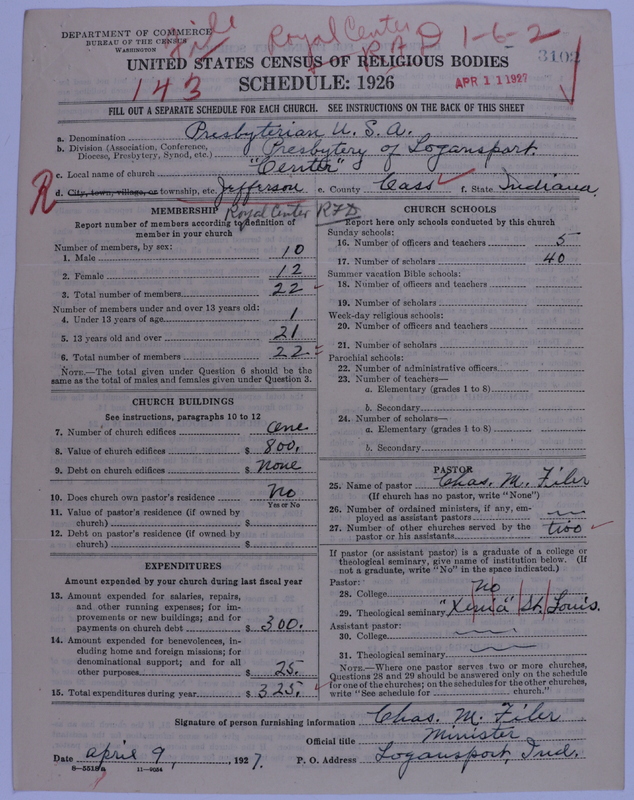 DEPARTMENT OF COMMERCE
BUREAU OF THE CENSUS
WASHINGTON
file Royal Center RFD 1-6-2
3102
143
UNITED STATES CENSUS OF RELIGIOUS BODIES
SCHEDULE: 1926
APR 11 1927
FILL OUT A SEPARATE SCHEDULE FOR EACH CHURCH. SEE INSTRUCTIONS ON THE BACK OF THIS SHEET
a. Denomination Presbyterian U.S.A.
b. Division (Association, Conference, Diocese, Presbytery, Synod, etc.) Presbytery of Logansport.
c. Local name of church "Center"
R
d. City, town, village, or township, etc. Jefferson e. County Cass f. State Indiana
Royal Center RFD
MEMBERSHIP
Report number of members according to definition of member in your church
Number of members, by sex:
1. Male 10
2. Female 12
3. Total number of members 22
Number of members under and over 13 years old:
4. Under 13 years of age 1
5. 13 years old and over 21
6. Total number of members 22
NOTE.—The total given under Question 6 should be the same as the total of males and females given under Question 3.
CHURCH BUILDINGS
See instructions, paragraphs 10 to 12
7. Number of church edifices One
8. Value of church edifices $ 800.
9. Debt on church edifices $ None
10. Does church own pastor's residence No
Yes or No
11. Value of pastor's residence (if owned by church) $
12. Debt on pastor's residence (if owned by church) $
EXPENDITURES
Amount expended by your church during last fiscal year
13. Amount expended for salaries, repairs, and other running expenses; for improvements or new buildings; and for payments on church debt $ 300.
14. Amount expended for benevolences, including home and foreign missions; for denominational support; and for all other purposes $ 25.
15. Total expenditures during year $ 325.
CHURCH SCHOOLS
Report here only schools conducted by this church
Sunday schools:
16. Number of officers and teachers 5
17. Number of scholars 40
Summer vacation Bible schools:
18. Number of officers and teachers
19. Number of scholars
Week-day religious schools:
20. Number of officers and teachers
21. Number of scholars
Parochial schools:
22. Number of administrative officers
23. Number of teachers—
a. Elementary (grades 1 to 8)
b. Secondary
24. Number of scholars—
a. Elementary (grades 1 to 8)
b. Secondary
PASTOR
25. Name of pastor Chas. M. Filer
(If church has no pastor, write "None")
26. Number of ordained ministers, if any, employed as assistant pastors
27. Number of other churches served by the pastor or his assistants two
If pastor (or assistant pastor) is a graduate of a college or theological seminary, give name of institution below. (If not a graduate, write "No" in the space indicated.)
Pastor:
28. College No
29. Theological seminary "Xenia" St. Louis.
Assistant pastor:
30. College
31. Theological seminary
NOTE.—Where one pastor serves two or more churches, Questions 28 and 29 should be answered only on the schedule for one of the churches; on the schedules for the other churches, write "See schedule for church."
Signature of person furnishing information Chas. M. Filer
Official title Minister
Date April 9, 1927. P. O. Address Logansport, Ind.
6-5518a 11-9054